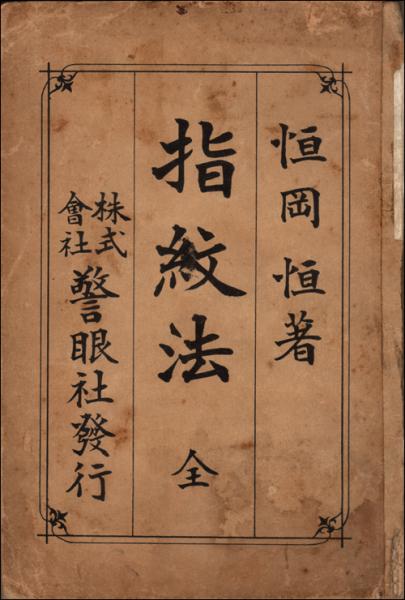 恒岡恒著
指紋法 全
株式會社警眼社發行